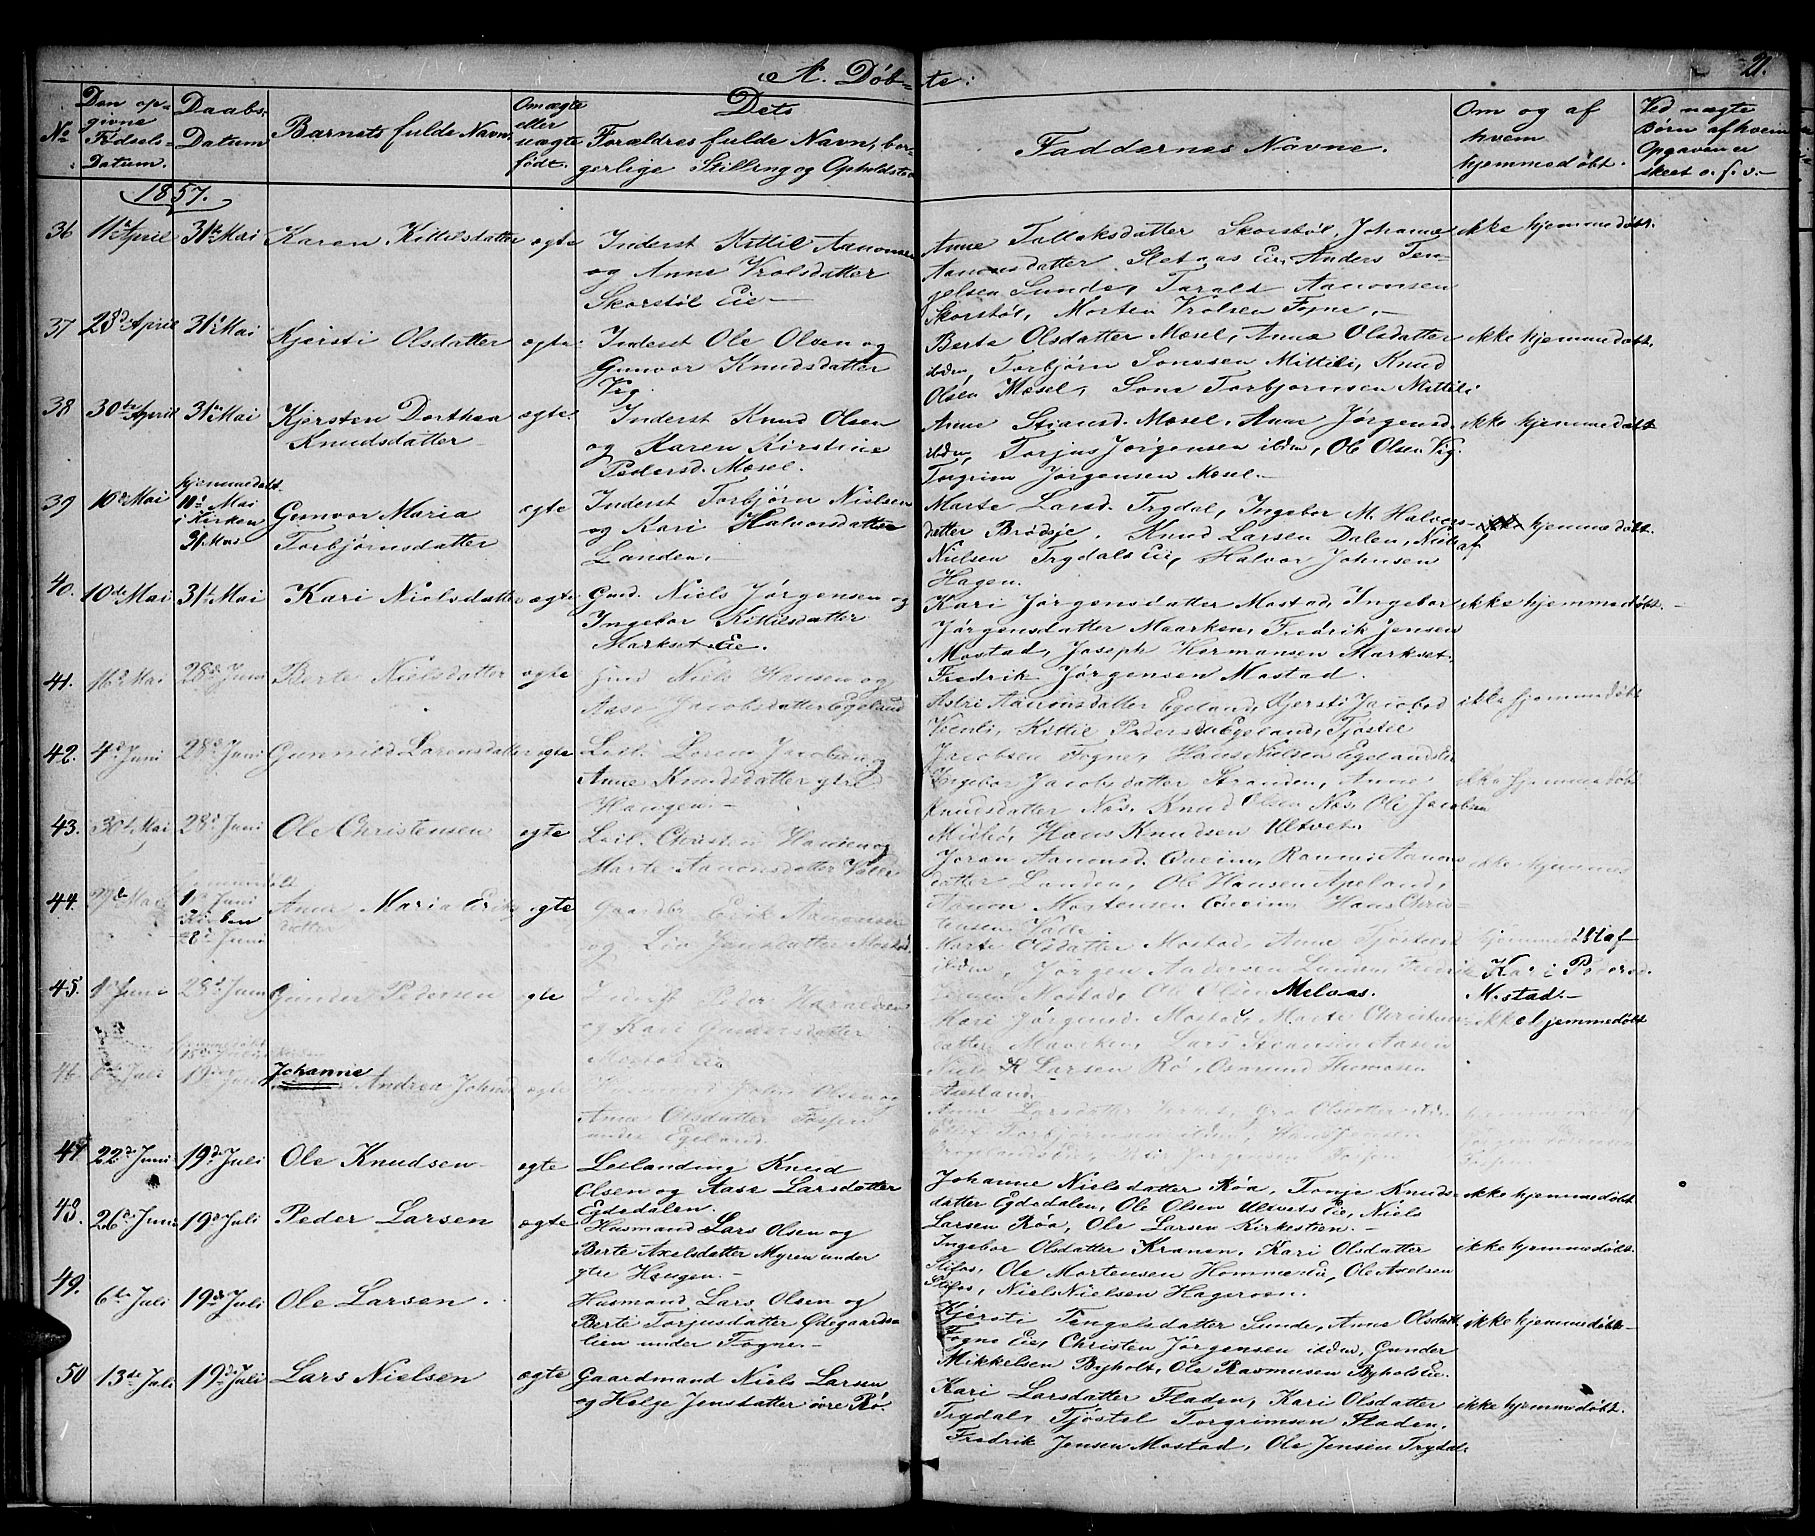 A. Døbte:
21.
No
Den opgivne Fødsels-Datum.
Daabs-Datum
Barnets fulde Navn.
Om ægte eller uægte født.
Dets Forældres fulde Navn, borgerlige Stilling og Opholdsted
Faddernes Navne.
Om og af hvem hjemmedøbt.
Ved uægte Børn af hvem Opgaven er skeet o. s. v.
1857.
36 11te April 31te Mai Karen Kittilsdatter ægte Inderst Kittil Aanonsen
og Anne Vrolsdatter
Skorstøl Eie
Anne Tallaksdatter Skorstøl, Johanne
Aanonsdatter Sletaas Eie, Anders Ten-
gelsen Sunde, Tarald Aanonsen
Skorstøl, Morten Vrolsen Fogne.
ikke hjemmedøbt.
37 23de April 31te Mai Kjersti Olsdatter ægte Inderst Ole Olsen og
Gunvor Knudsdatter
Vig
Berte Olsdatter Mæsel, Anne Olsdatter
ibdm, Torbjørn Sonesen Mittili, Knud
Olsen Mæsel, Sone Torbjørnsen Mittili
ikke hjemmedøbt.
38 30te April 31te Mai Kjersten Dorthea
Knudsdatter
ægte Inderst Knud Olsen
og Karen Kirstine
Pedersd. Mæsel.
Anne Stiansd. Mæsel, Anne Jørgensd
ibdm, Torjus Jørgensen ibdm, Ole Olsen Vig.
Torgrim Jørgensen Mæsel.
ikke hjemmedøbt
39 10de Mai hjemmedøbt
10de Mai
i Kirken
31 Mai
Gunvor Maria
Torbjørnsdatter
ægte Inderst Torbjørn Nielsen
og Kari Halvorsdatter
Landen.
Marte Larsd. Trydal, Ingebor M. Halvors-
datter Brødsje, Knud Larsen Dalen, Niels
Nielsen Trydals Eie, Halvor Johnsen
Hagen.
hjemmedøbt.
af
40. 10de Mai 31te Mai Kari Nielsdatter ægte Gmd. Niels Jørgensen og
Ingebor Kittilsdatter
Markset Eie.
Kari Jørgensdatter Mostad, Ingebor
Jørgensdatter Maarken, Fredrik Jensen
Mostad, Joseph Hermansen Markset.
Fredrik Jørgensen Mostad.
ikke hjemmedøbt.
41. 16de Mai 28de Juni Berte Nielsdatter ægte Niels Hansen og
Aase Jacobsdatter Egeland
Astri Aanonsdatter Egeland, Kjersti Jacobsd
Veenli, Kittil Pedersen Egeland, Tjøstil
Jacobsen Fogne, Hans Nielsen Egelands Eie
ikke hjemmedøbt
42. 4de Juni 28de Juni Gunnild Lorensdatter ægte Leil. Lorens Jacobsen og
Anne Knudsdatter ytre
Haugen.
Ingebor Jacobsdatter Stranden, Anne
Knudsdatter Næs, Knud Olsen Næs, Ole Jacobsen
Midbø, Hans Knudsen Ultvet.
ikke hjemmedøbt
43. 30te Mai 28de Juni Ole Christensen ægte Leil. Christen Hansen og
Marte Aanonsdatter Valle
Joran Aanonsd. Qveim, Aanon-
datter Landen, Ole Hansen Apeland,
Aanon Mortensen Qveim, Hans Chris-
tensen Valle
ikke hjemmed
44. Mai hjemmedøbt
1de Juni
Kirken
28de Juni
Anne Maria Eriks-
datter
ægte Gaardbr. Erik Aanonsen
og Lia Jensdatter Mostad
Marte Olsdatter Mostad, Anne Tjøstelsd
ibdm, Jørgen Andersen Landen, Fredrik
Jensen Mostad, Ole Olsen Melaas.
hjemmedøbt af
Kari Pedersd.
Mostad.
45. Juni 28de Juni Gunder Pedersen ægte Inderst Peder
og Kari Gundersdatter
Mostad Eie
Kari Jørgensd. Mostad, Marte Christens-
datter Maarken, Lars Stiansen Aasen
Niels K Larsen Rø, Osmund Thomasen
Aasland.
ikke hjemmedøbt
46 Juli 19de Juli Johanne
Andrea Johnsd ægte John Olsen og
Anne Olsdatter Fossen
under Egeland.
Anne Larsdatter, Gro Olsdatter ibdm
Torbjørnsen ibdm, Hans Jensen
Jørgensen Fossen
hjemmedøbt af
Fossen
47 22de Juni 19de Juli Ole Knudsen ægte Leilænding Knud
Olsen og Aase Larsdatter
Egdedalen.
Johanne Nielsdatter Røa, Tonje Knuds-
datter Egdedalen, Ole Olsen Ultvets Eie, Niels
Larsen Røa, Ole Larsen Kirkestien.
ikke hjemmedøbt
48. 26de Juni 19de Juli Peder Larsen ægte Husmand Lars Olsen og
Berte Axelsdatter Myren under
ytre Haugen.
Ingebor Olsdatter Kranen, Kari Olsdatter
Stifos, Ole Mortensen Homme Eie, Ole Axelsen
Stifos, Niels Nielsen Hageroen.
ikke hjemmedøbt.
49. 6te Juli 19de Juli Ole Larsen. Husmand Lars Olsen og
Berte Torjusdatter Ødegaards-
lien under Fogne.
Kjersti Tengelsdatter Sunde, Anne Olsdatt
Fogne Eie, Christen Jørgensen ibdm, Gunder
Mikkelsen Byholt, Ole Rasmusen Byholt Eie.
ikke hjemmedøbt
50 13de Juli 19de Juli Lars Nielsen ægte Gaardmand Niels Larsen
og Helge Jensdatter øvre Rø.
Kari Larsdatter Fladen, Kari Olsdatter
Trydal, Tjøstel Torgrimsen Fladen,
Fredrik Jensen Mostad, Ole Jensen Trydal.
ikke hjemmedøbt.